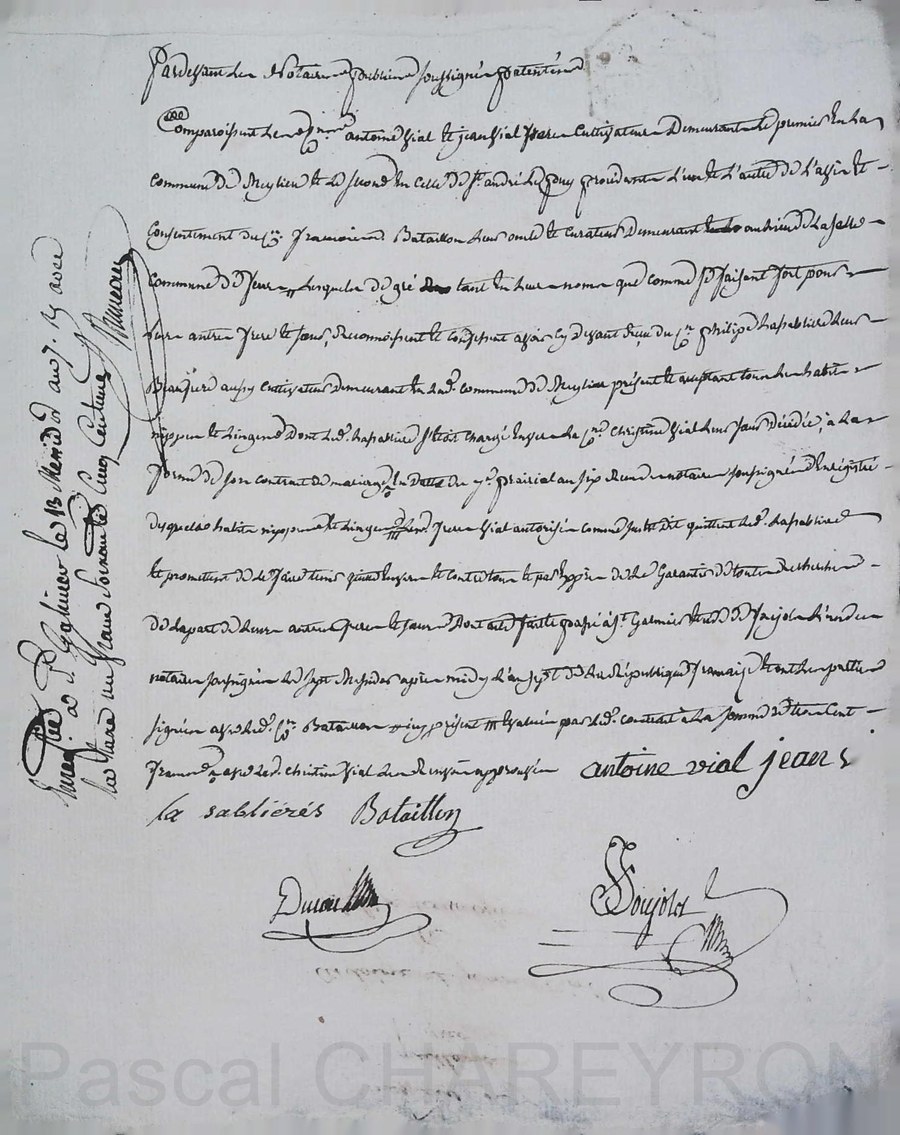 Pardevant Le Notaire public soussigné patenté
Comparoissent Les Cns antoine Vial et jean Vial frere Cultivateurs Demeurants Le premier en La
Commune de Meylieu et Le second en celle de St. andré Le puy procédants L'un et L'autre de L'avis et
Consentement du Cn. francois Bataillon Leur oncle et Curateur Demeurant au lieu de La
Commune de Leurs Lesquels de gré tant en Leur nom que comme se faisant fort pour
Leurs autres freres et sœurs, Reconnoissent et confessent avoir cy devant Reçu du Cn philipe Lasabliere Leur
Beaufrere aussy Cultivateur demeurant en Lad. commune de Meylieu présent et acceptant tous Les habits
nippes et Linges Dont Led. Lasabliere s'etoit chargé envers La Cne Christine Vial Leur sœur Décédée, à La
forme de son contrat de mariage En datte du prairial an six Reçu du notaire soussigné Enregistré
desquels habits nippes et Linges Les freres Vial autorisés comme susdit quittent Led. Lasabliere
et promettent de Le faire tenir quitte envers et contre tous et par exprès de Le Garantir de toute Recherche
de La part de Leurs autres freres et sœurs Dont acte fait et passé à St Galmier Etude de Soujolet L'un des
notaires soussignés Le sept Messidor après midy L'an sept de La République francaise et ont Les parties
signées avec Led. Cn Bataillon évalués par Led. contrat à La somme de trois Cent
francs avec Lad. Christine Vial Les Renvoys approuvés antoine vial jean
la sabliérés Bataillon
Soujolet
Enregistré à St Galmier le 13 Messidor an 7. Reçu
un franc Soixante Cinq Centimes Bruneau
Pascal CHAREYRON